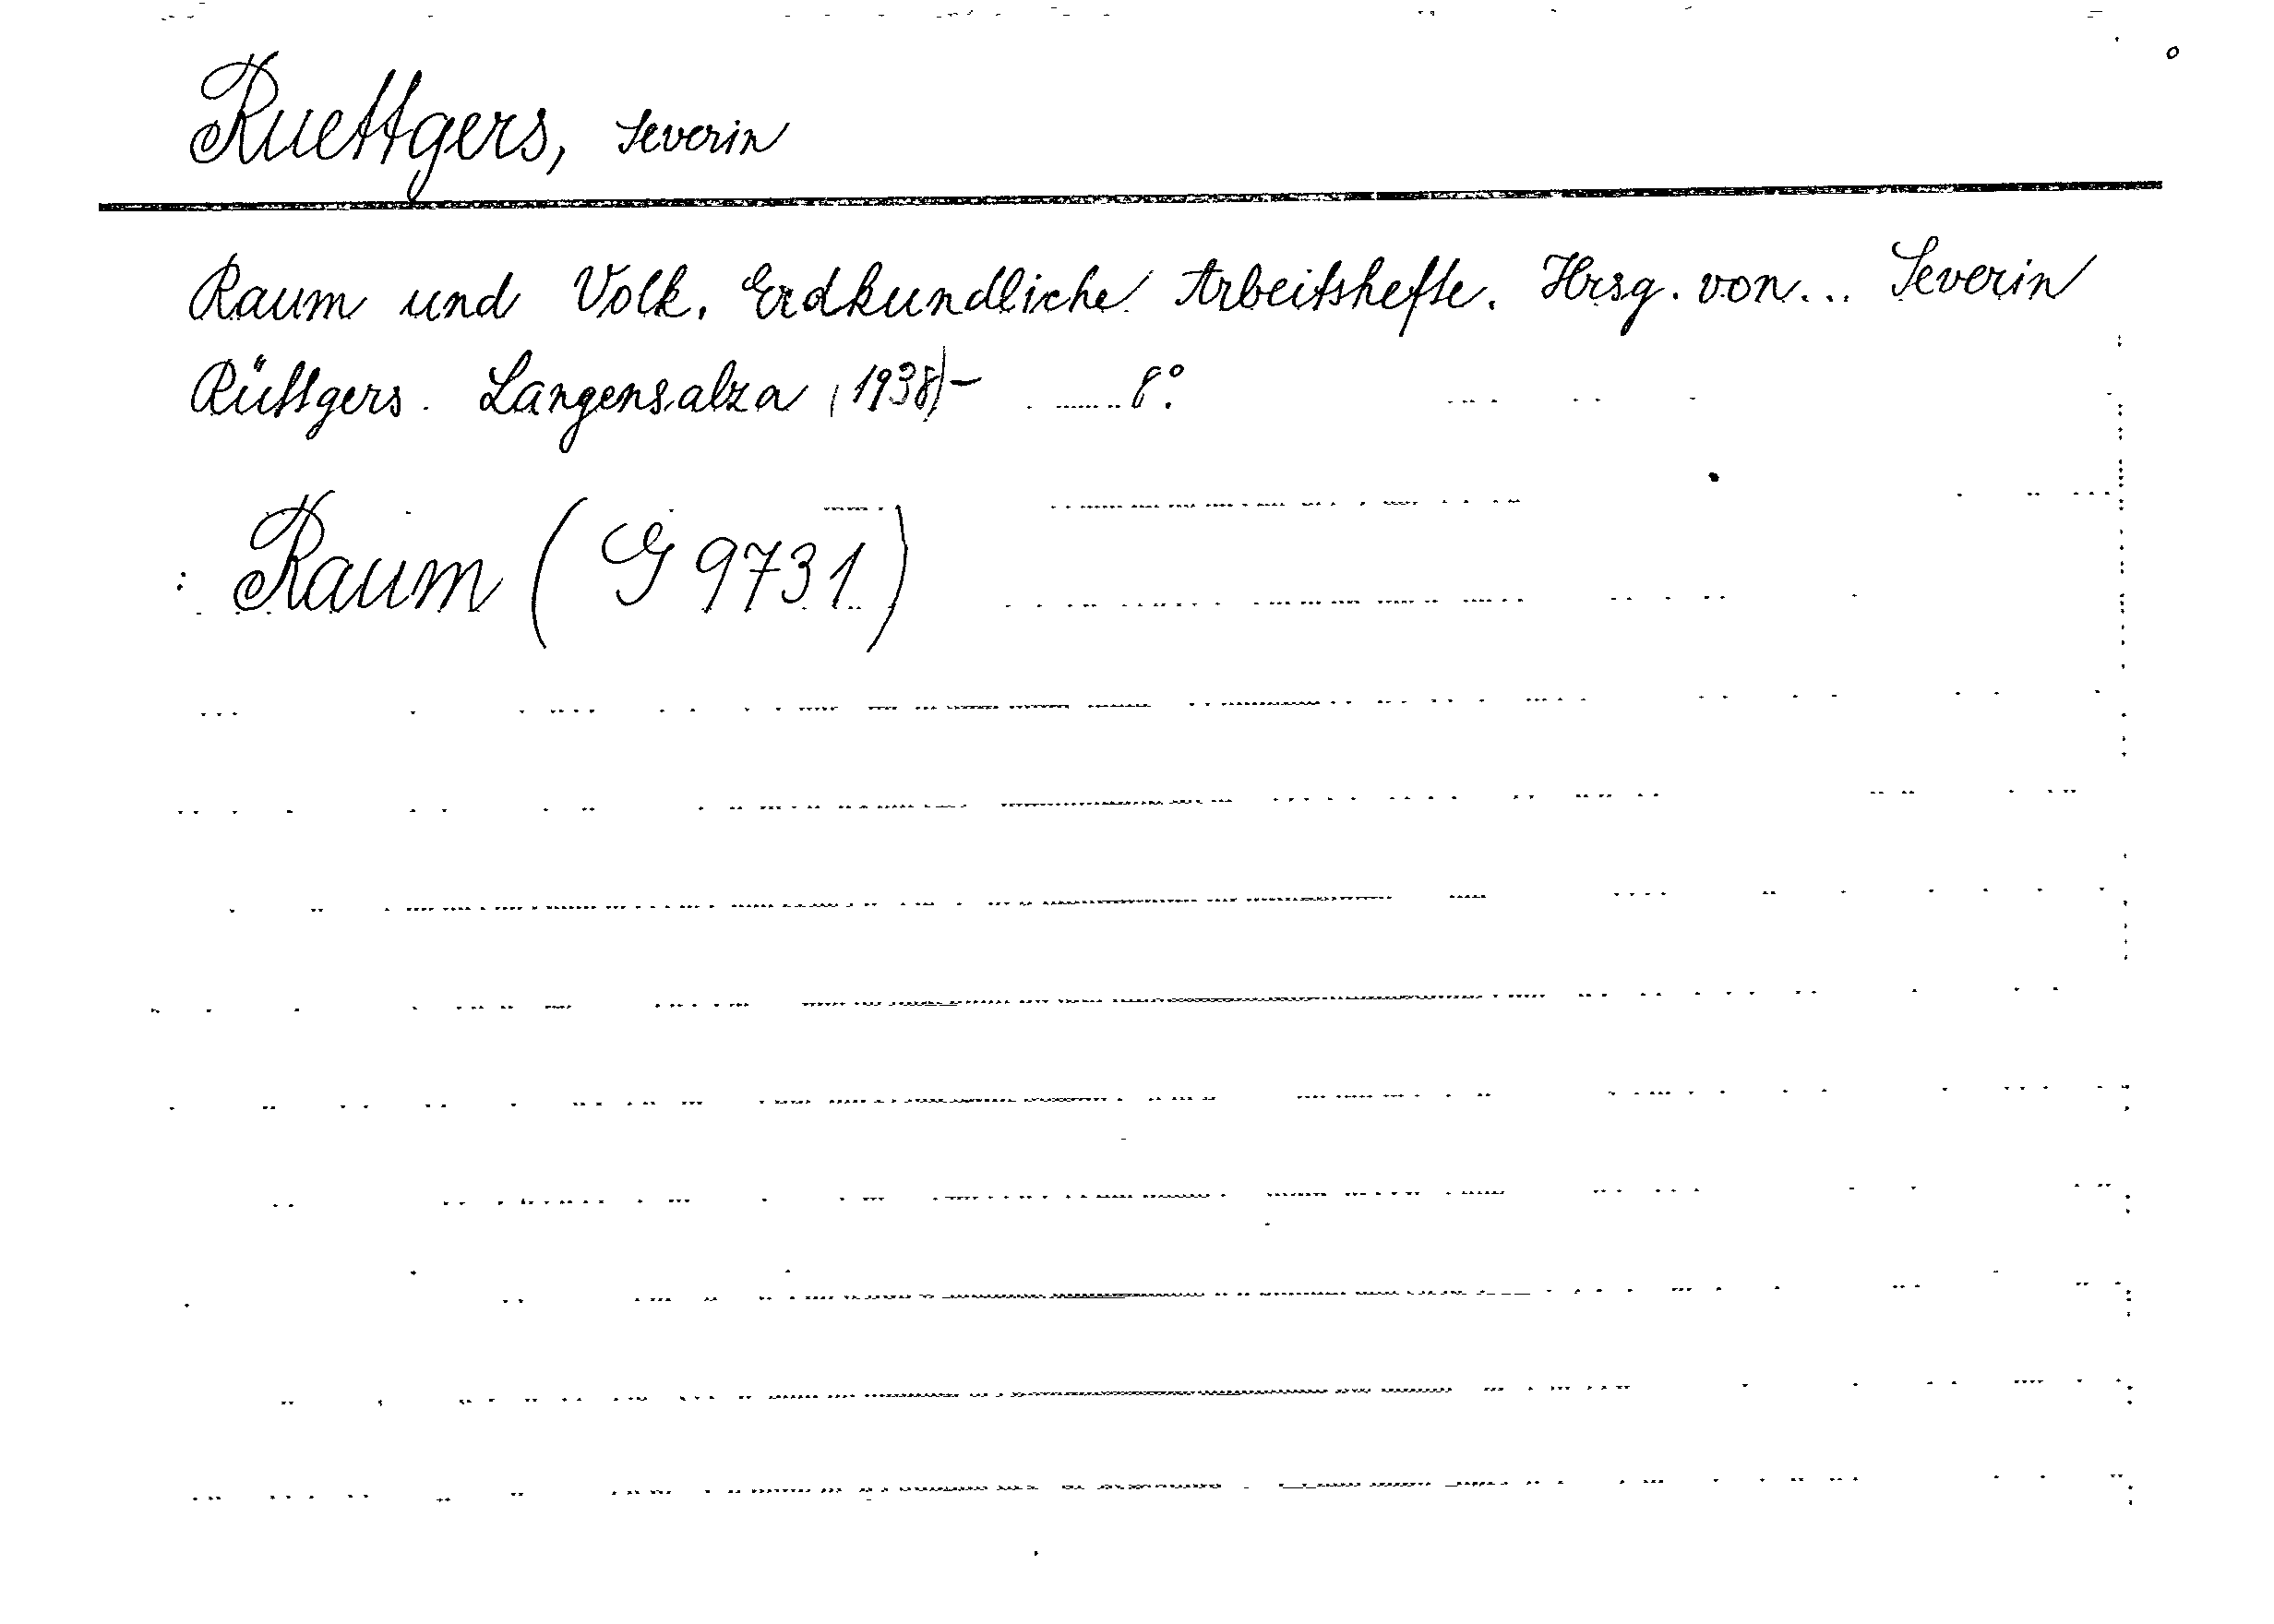 Ruettgers, Severin
Raum und Volk. Erdkundliche Arbeitshefte. Hrsg. von... Severin
Rüttgers. Langensalza (1938)- 8°.
: Raum (G 9731)